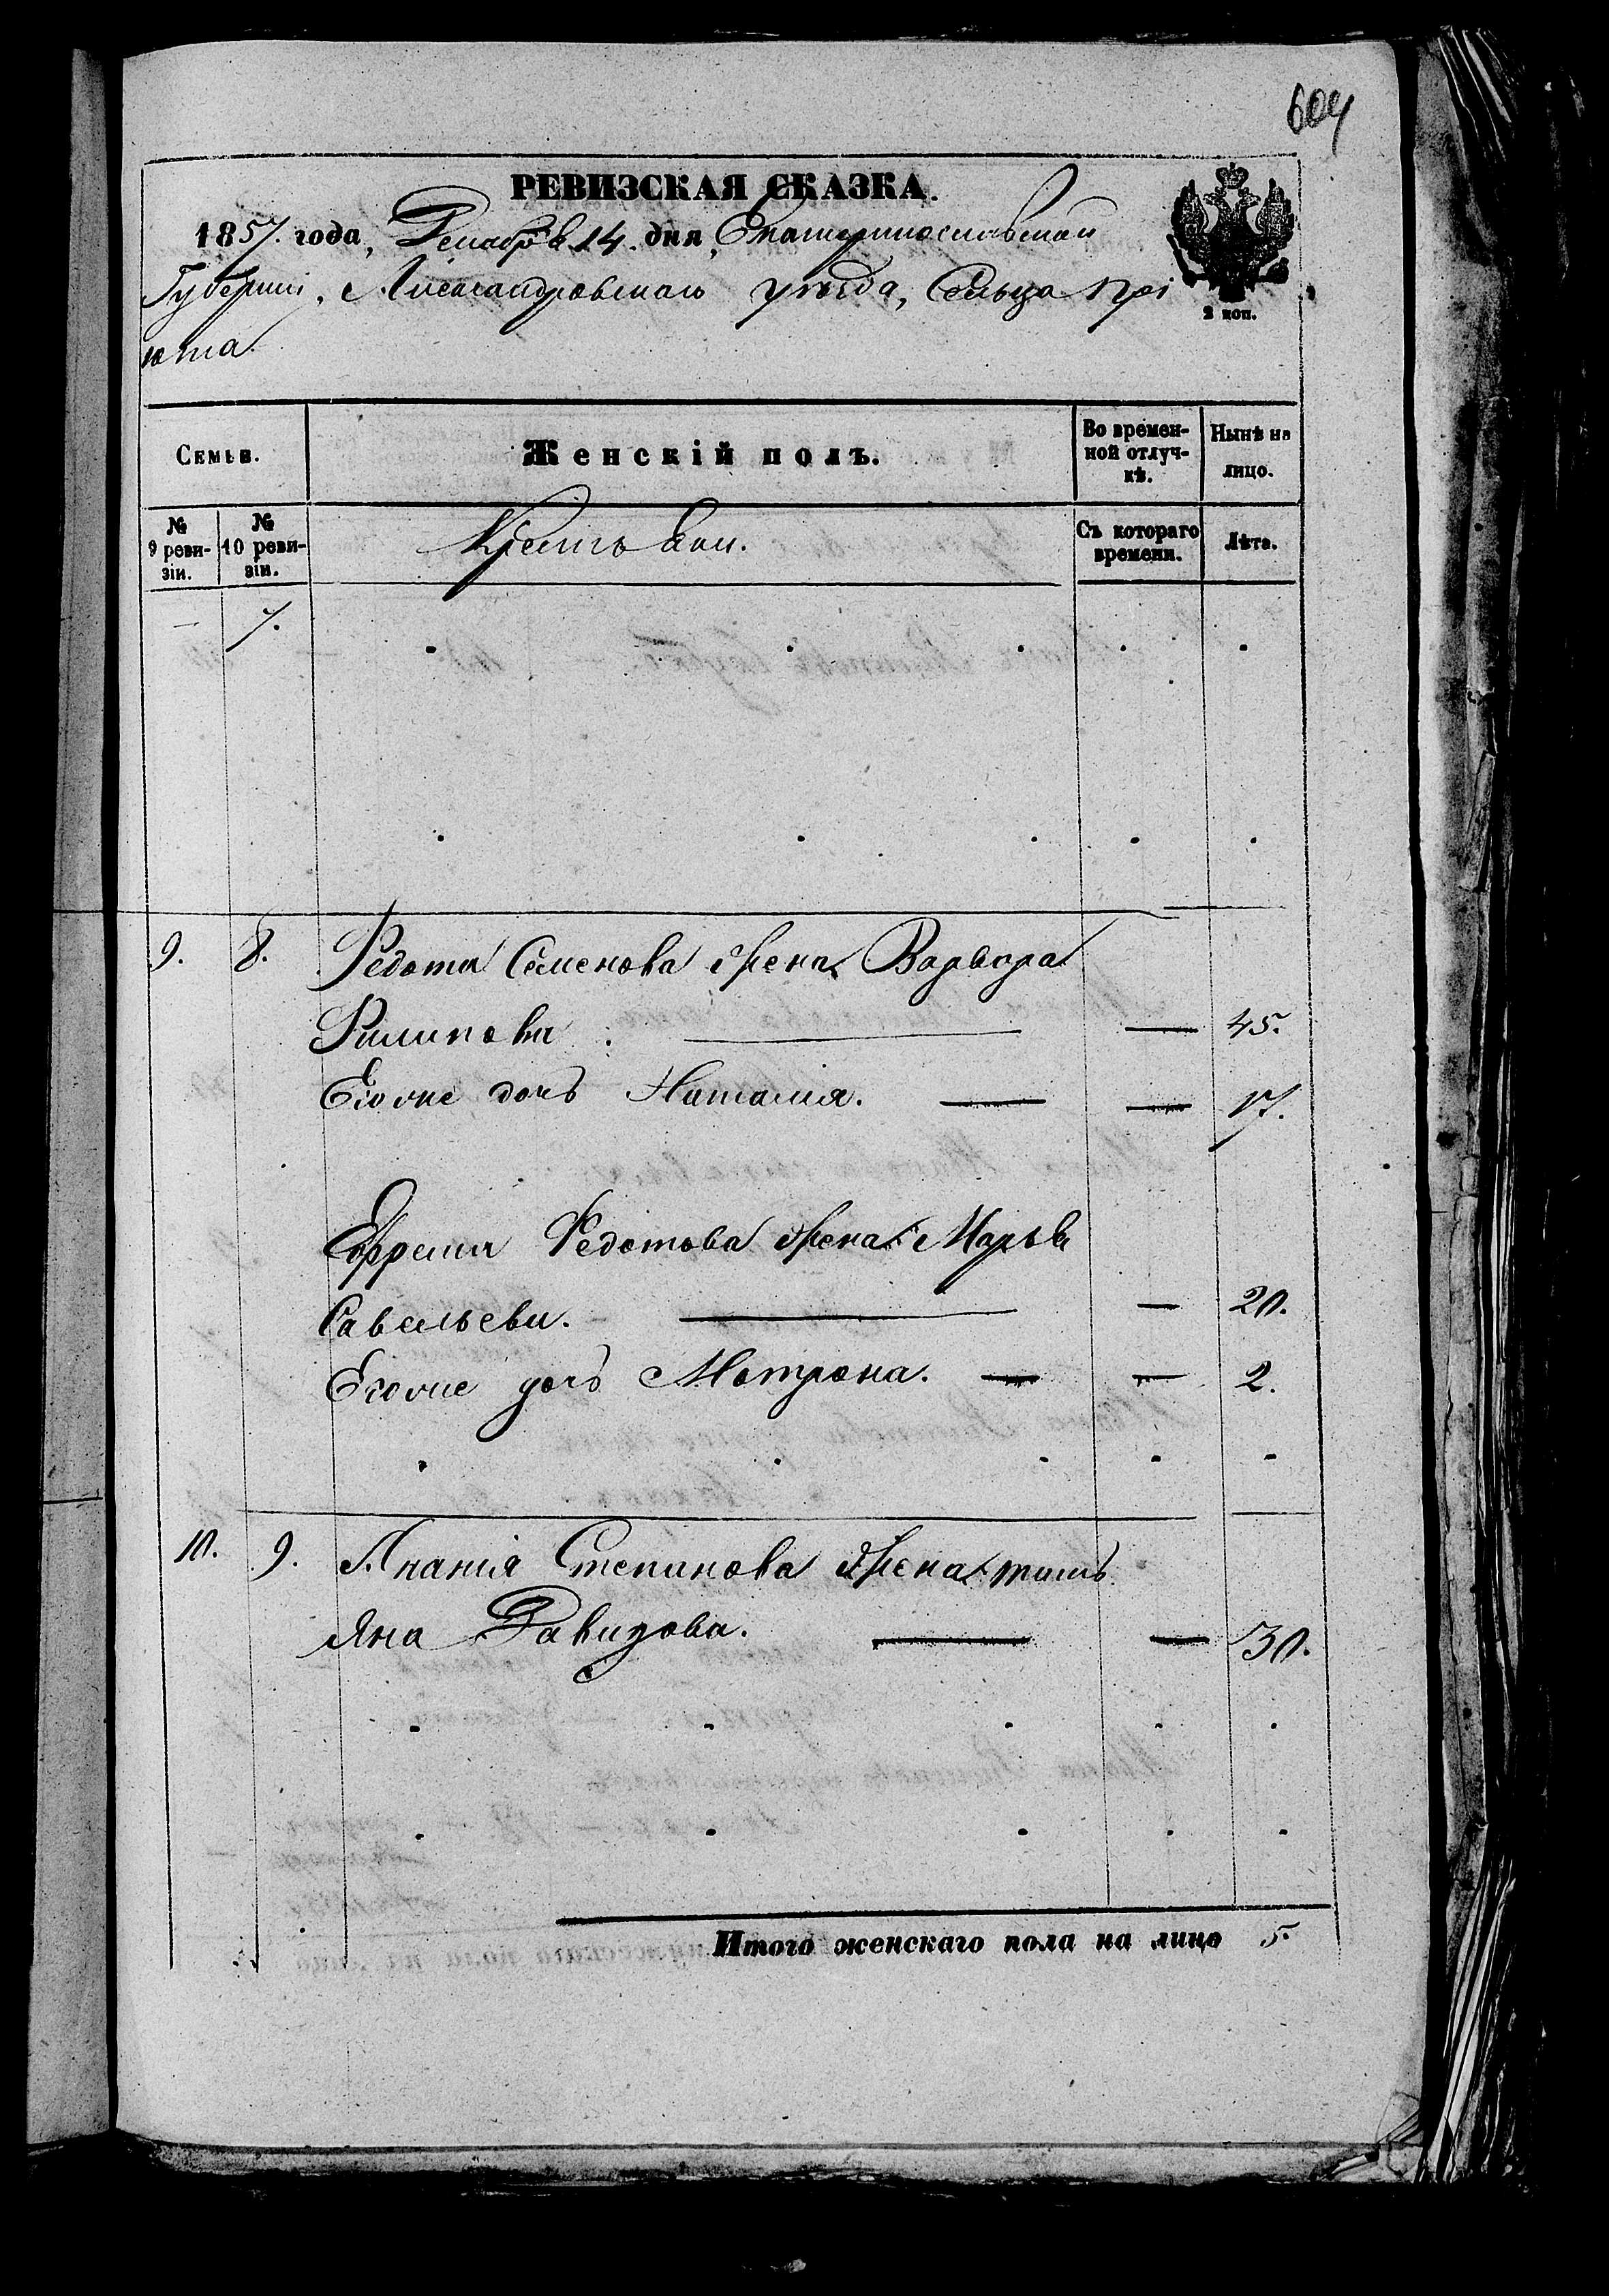 604
РЕВИЗСКАЯ СКАЗКА.
1857. года, Декабря 14. дня, Екатеринославской
Губерніи, Александровскаго уѣзда, Сельца Прі
юта.
2 коп.
Семьи.
Женскій полъ.
Во времен-
ной отлуч-
кѣ.
Нынѣ на
лицо.
№
9 реви-
зіи.
№
10 реви-
зіи.
Крестьяне.
Съ котораго
времени.
Лѣта.
— 7.
9. 8. Федота Семенова жена Варвара
Филипова — — 45.
Еговне дочь Наталія. — — 17.
Ефрема Федотова жена Марья
Савельева. — — 20.
Еговне дочь Мотрона. — — 2.
10. 9. Ананія Степанова жена Тать
яна Давидова. — — 30.
Итого женскаго пола на лицо 5.